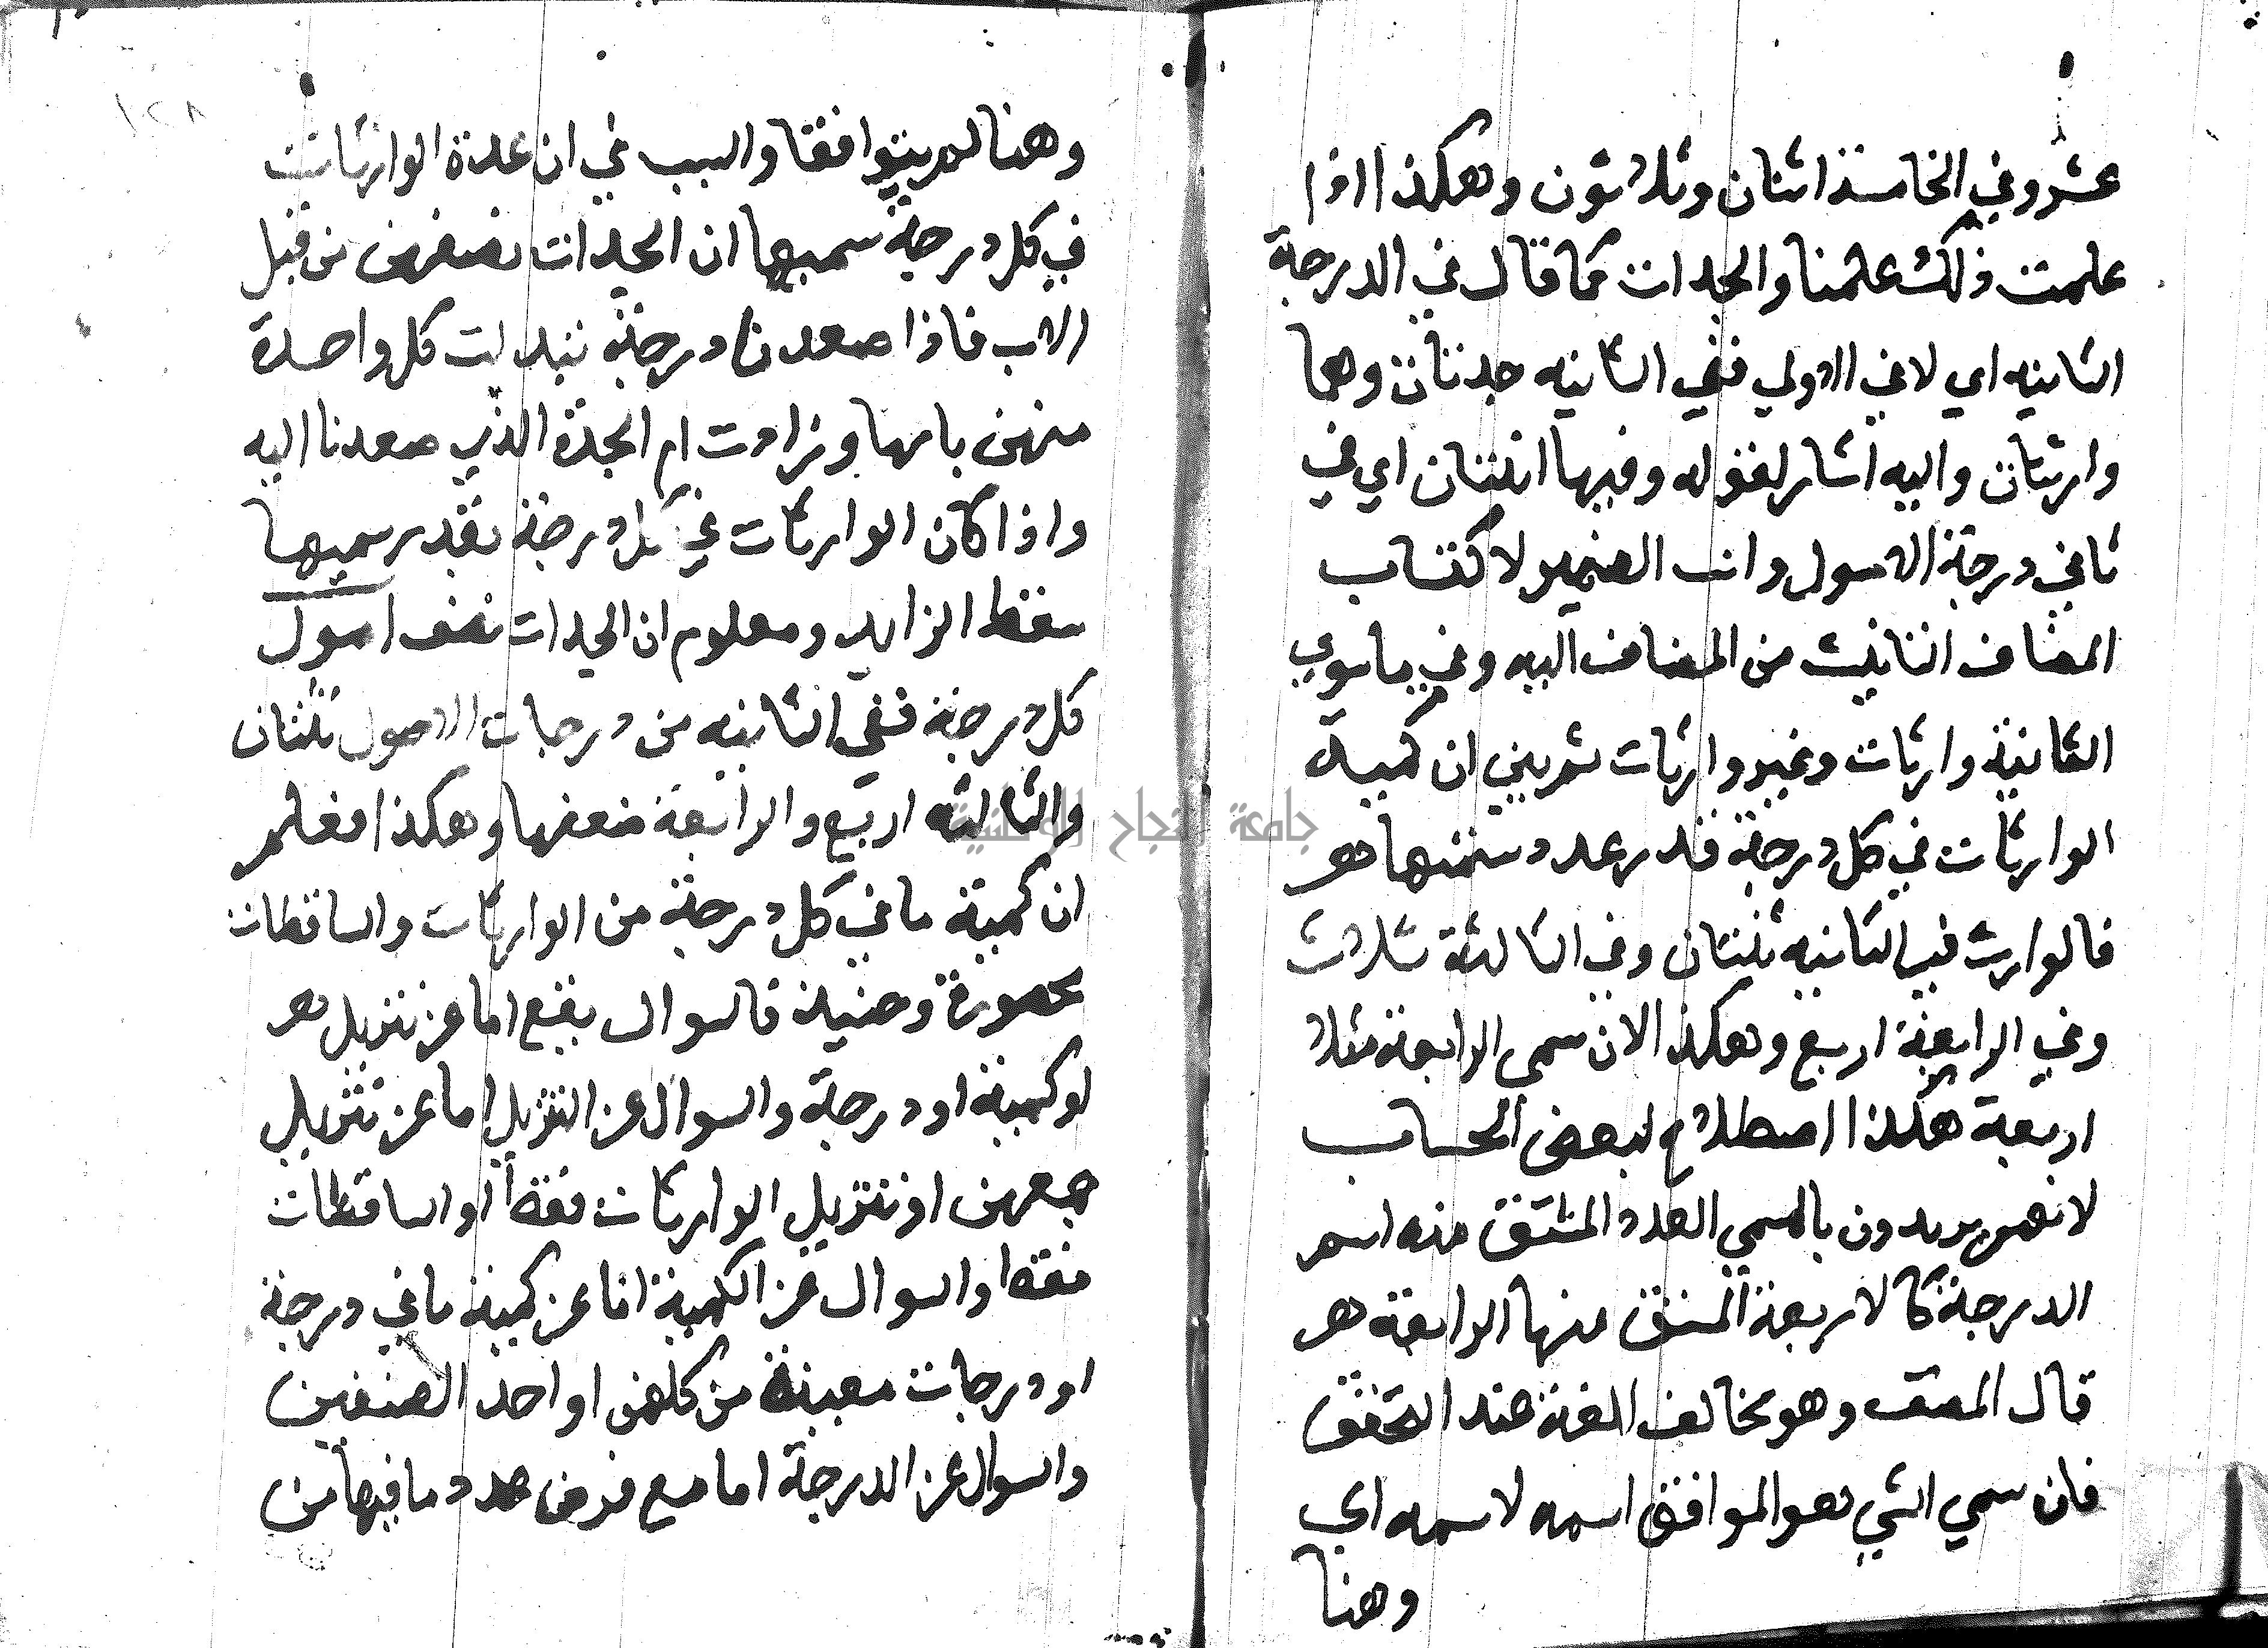 عشر وفي الخامسة اثنان وثلاثون وهكذا اذا
علمت ذلك علمنا والجدات كما قال في الدرجة
الثانيه اي لا في الاولي ففي الثانيه جدتان وهما
وارثتان واليه اشار لقوله وفيها اثنتان اي في
ثاني درجة الاصول وانث الضمير لاكتساب
المضاف التانيث من المضاف اليه وفي ما سوي
الثانية وارثات وغير وارثات ثم بين ان كمية
الوارثات في كل درجة قدر عدد سميها هو
فالوارث في الثانيه ثنتان وفي الثالثة ثلاث
وفي الرابعة اربع وهكذا لان سمي الرابعة مثلا
اربعة هكذا اصطلاح لبعض الحساب
لانهم يريدون بالسمي العدد المشتق منه اسم
الدرجة كالاربعة المشتق منها الرابعة هو
قال المصنف وهو مخالف اللغة عند التحقق
فان سمي الشي هو الموافق اسمه لاسمه اي
وهنا
وهنا لم يتوافقا والسبب في ان عدة الوارثات
في كل درجة سميها ان الجدات نصفهن من قبل
الاب فاذا صعدنا درجة تبدلت كل واحدة
منهن بامها وزادت ام الجد الذي صعدنا اليه
واذا كان الوارثات في كل درجة بقدر سميها
سقط الزايد ومعلوم ان الجدات نصف اصول
كل درجة ففي الثانيه من درجات الاصول ثنتان
والثالثه اربع والرابعة ضعفها وهكذا فعلم
ان كمية ما في كل درجة من الوارثات والساقطات
محصورة فالسوال يقع اما عن تنزيل هو
او كمية او درجة والسوال عن التنزيل اما عن تنزيل
جمعهن او تنزيل الوارثات فقط او الساقطات
فقط والسوال عن الكمية اما عن كمية ما في درجة
او درجات معينة من كلهن او احد الصنفين
والسوال عن الدرجة اما مع فرض عدد ما فيها من
جامعة النجاح الوطنية
١٢٨